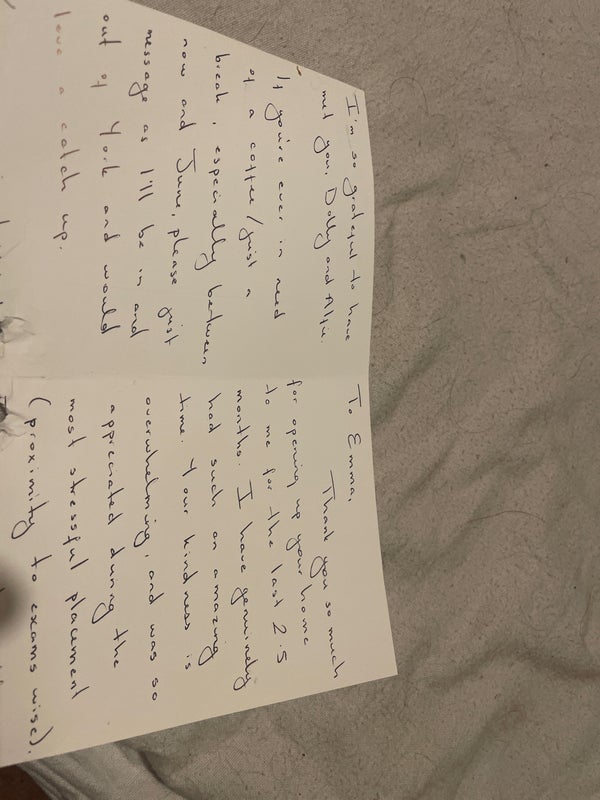 To Emma,
Thank you so much
for opening up your home
to me for the last 2.5
months. I have genuinely
had such an amazing
time. Your kindness is
overwhelming, and was so
appreciated during the
most stressful placement
(proximity to exams wise).
I'm so grateful to have
met you, Dolly and Alfie.
If you're ever in need
of a coffee/just a
break, especially between
now and June, please just
message as I'll be in and
out of York and would
love a catch up.